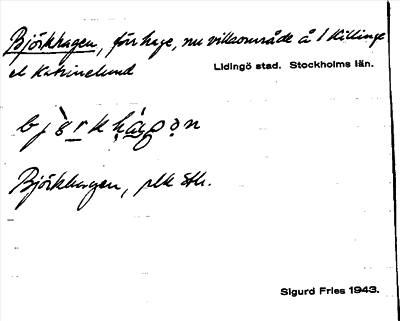 Björkhagen, förr hage, nu villaområde å 1 Killinge
el Katrinelund
Lidingö stad. Stockholms län.
Björkhagen, plk Sth.
Sigurd Fries 1943.